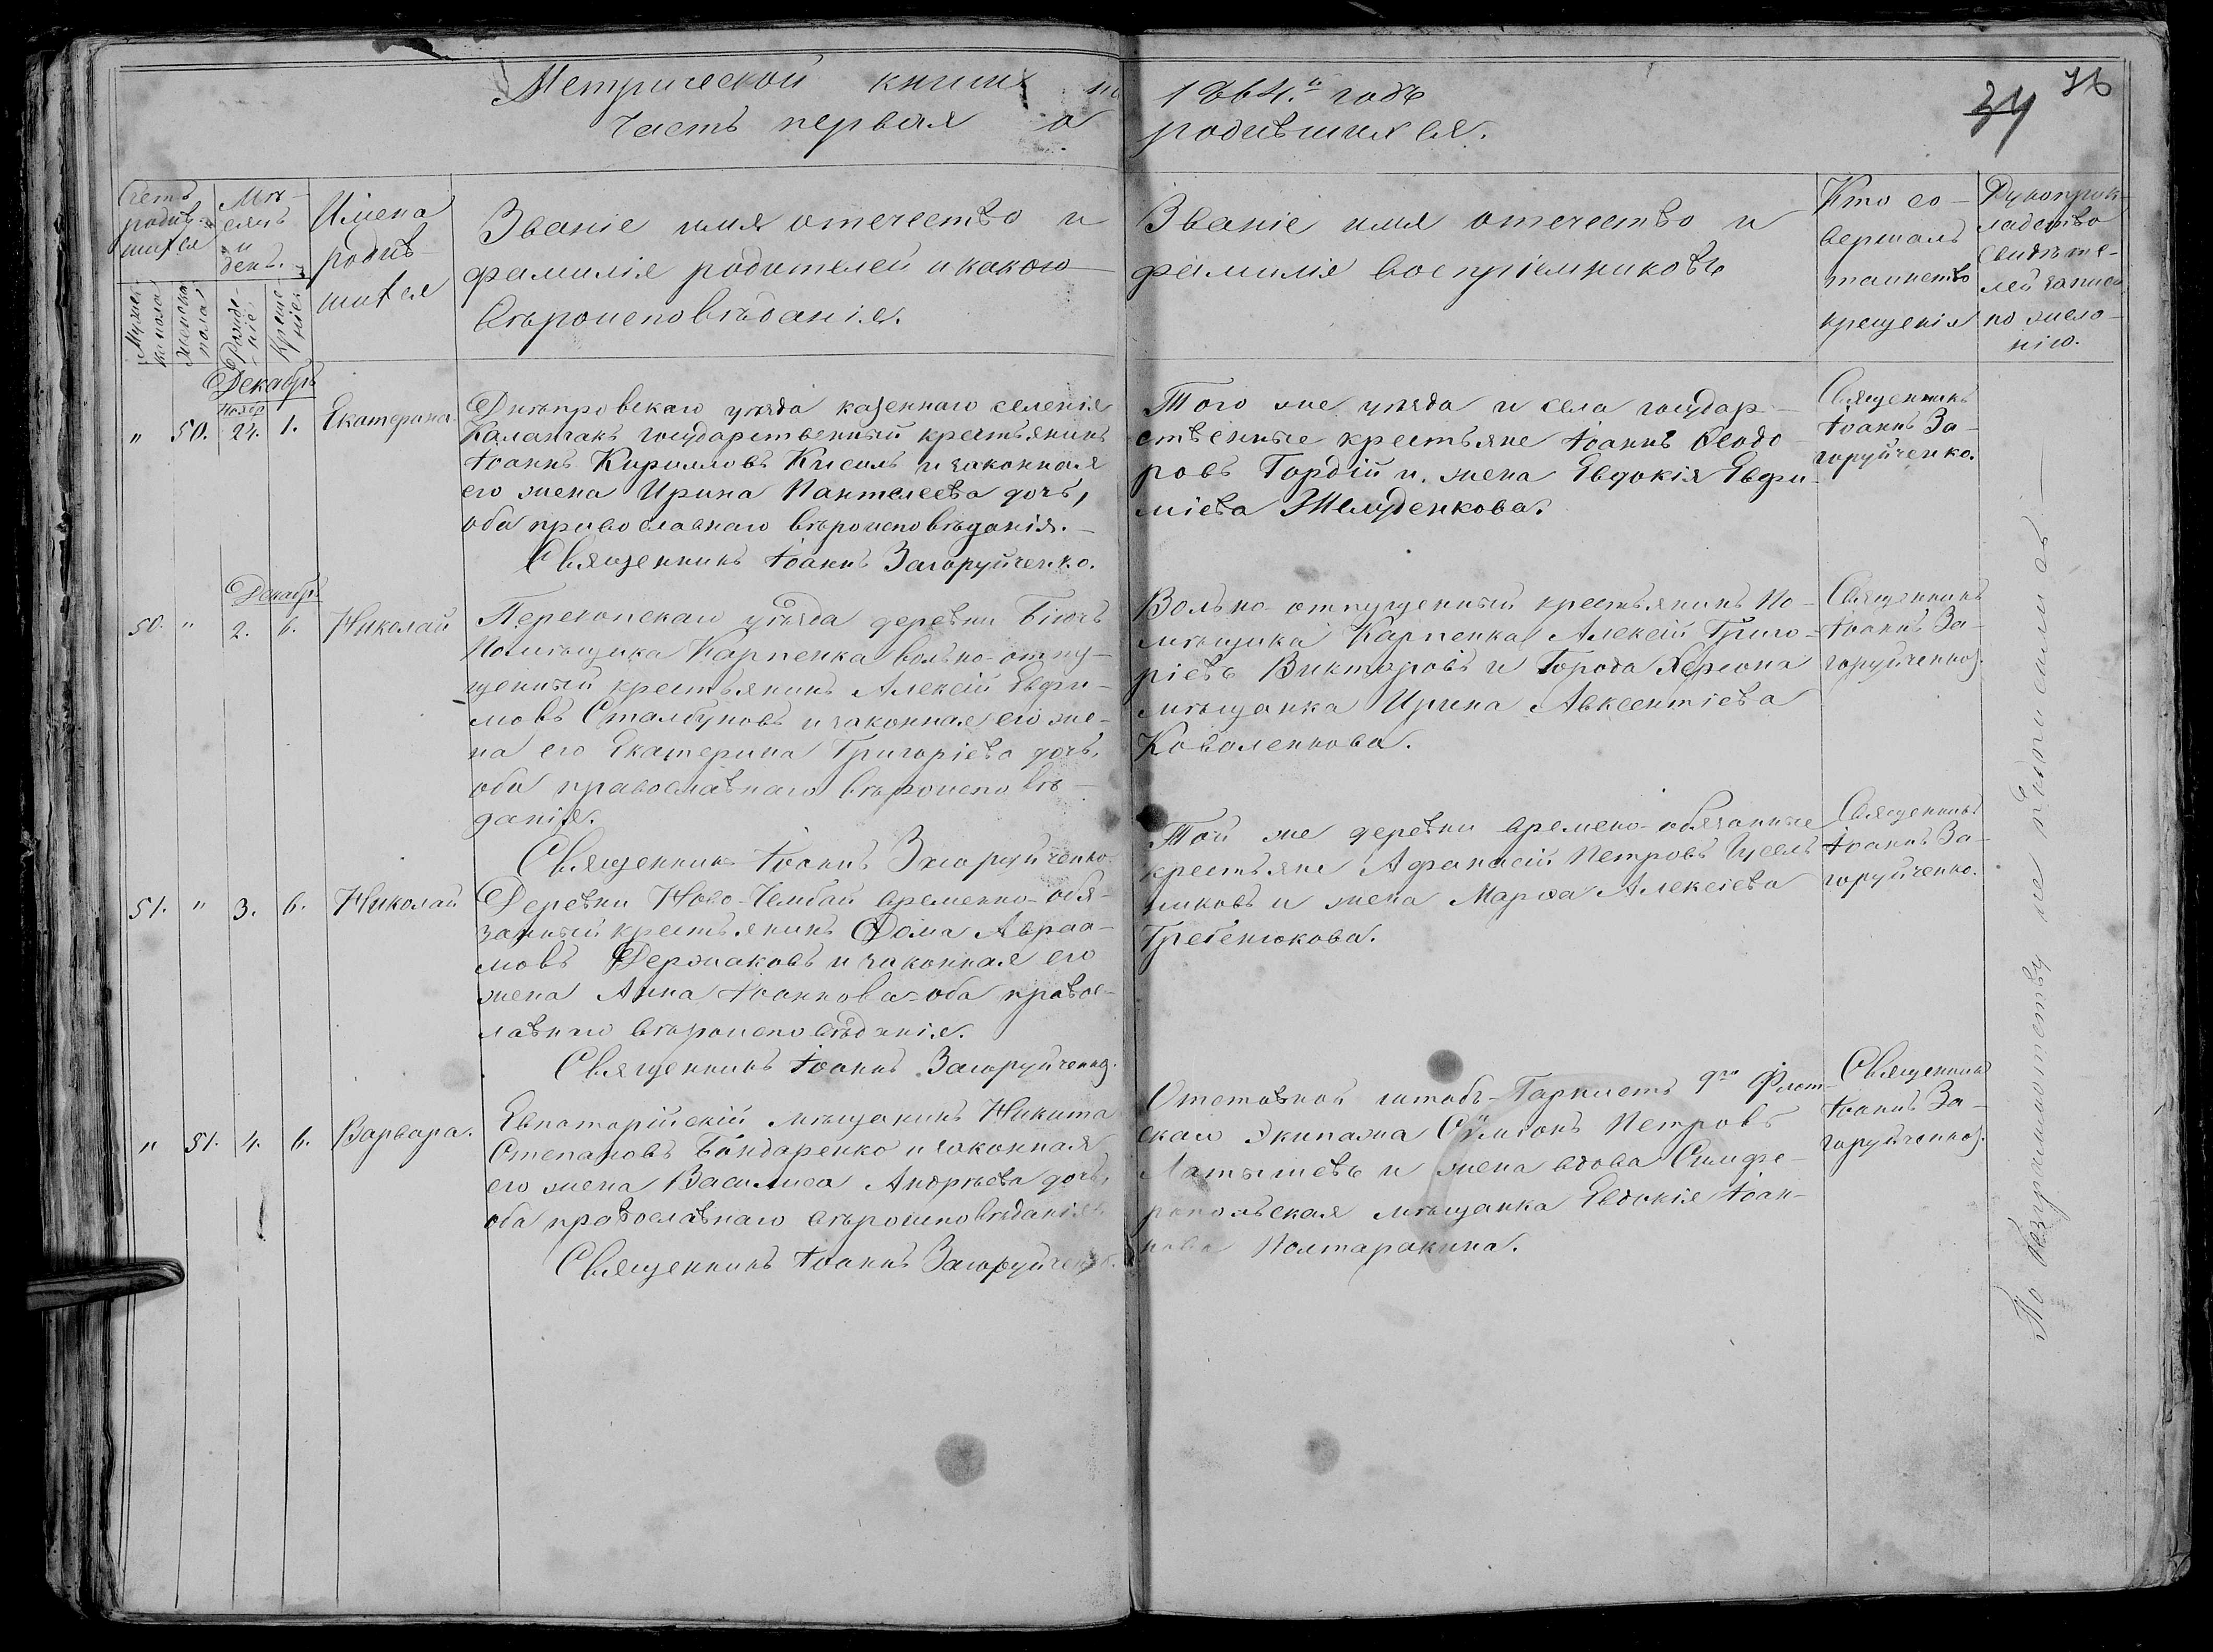 Метрической книги на 1864.й годъ
34 76
Часть первая о родившихся.
Счетъ
родив-
шихся
Мѣ-
сяцъ
и
день.
Имена
родив-
шихся
Званіе имя отечество и
фамилія родителей и какого
вѣроисповѣданія.
Званіе имя отечество и
фамилія воспріемниковъ
Кто со-
вершалъ
таинство
крещенія
Рукоприк-
ладство
свидѣте-
лей записи
по жела-
нію.
Мужес-
ка пола
женска
пола
Рожде-
ніе
Креще-
ніе
Декабрь
Нояб
" 50. 24. 1. Екатерина
Днѣпровскаго уѣзда казеннаго селенія
Каланчакъ государственный крестьянинъ
Іоаннъ Кирилловъ Кисиль и законная
его жена Ирина Пантелеева дочь,
оба православнаго вѣроисповѣданія.-
Священникъ Іоаннъ Загоруйченко.
Того же уѣзда и села государ-
ственные крестьяне Іоаннъ Ѳеодо-
ровъ Гордій и жена Евдокія Евфи-
міева Желуденкова.
Священникъ
Іоаннъ За-
горуйченко.
Декабрь
50. " 2. 6. Николай
Перекопскаго уѣзда деревни Біючъ
Помѣщика Карпенка вольно-отпу-
щенный крестьянинъ Алексій Евфи-
мовъ Сталбуновъ и законная его же-
на его Екатерина Григоріева дочь,
оба православнаго вѣроисповѣ-
данія.
Священникъ Іоаннъ Загоруйченко.
Вольно-отпущенный крестьянинъ По-
мѣщика Карпенка Алексій Григо-
ріевъ Викторовъ и Города Херсона
мѣщанка Ирина Авксентіева
Коваленкова.
Священникъ
Іоаннъ За-
горуйченко.
51. " 3. 6. Николай
Деревни Ново-Чембай временно-обя-
занный крестьянинъ Ѳома Авраа-
мовъ Держаковъ и законная его
жена Анна Іоаннова оба правос-
лавнаго вѣроисповѣданія.
Священникъ Іоаннъ Загоруйченко.
Той же деревни времено-обязанные
крестьяне Афанасій Петровъ
и жена Марѳа Алексіева
Гребенюкова.
Священникъ
Іоаннъ За-
горуйченко.
" 51. 4. 6. Варвара.
Евпаторійскій мѣщанинъ Никита
Степановъ Бондаренко и законная
его жена Василиса Андрѣева дочь,
оба православнаго вѣроисповѣданія.
Священникъ Іоаннъ Загоруйченко.
Отставной штабъ-Гарнистъ 9го Флот-
скаго Экипажа Сѵмеонъ Петровъ
Латышевъ и жена вдова Симфе-
ропольская мѣщанка Евдокія Іоан-
нова Полтаракина.
Священникъ
Іоаннъ За-
горуйченко.
По безграмотству не подписались